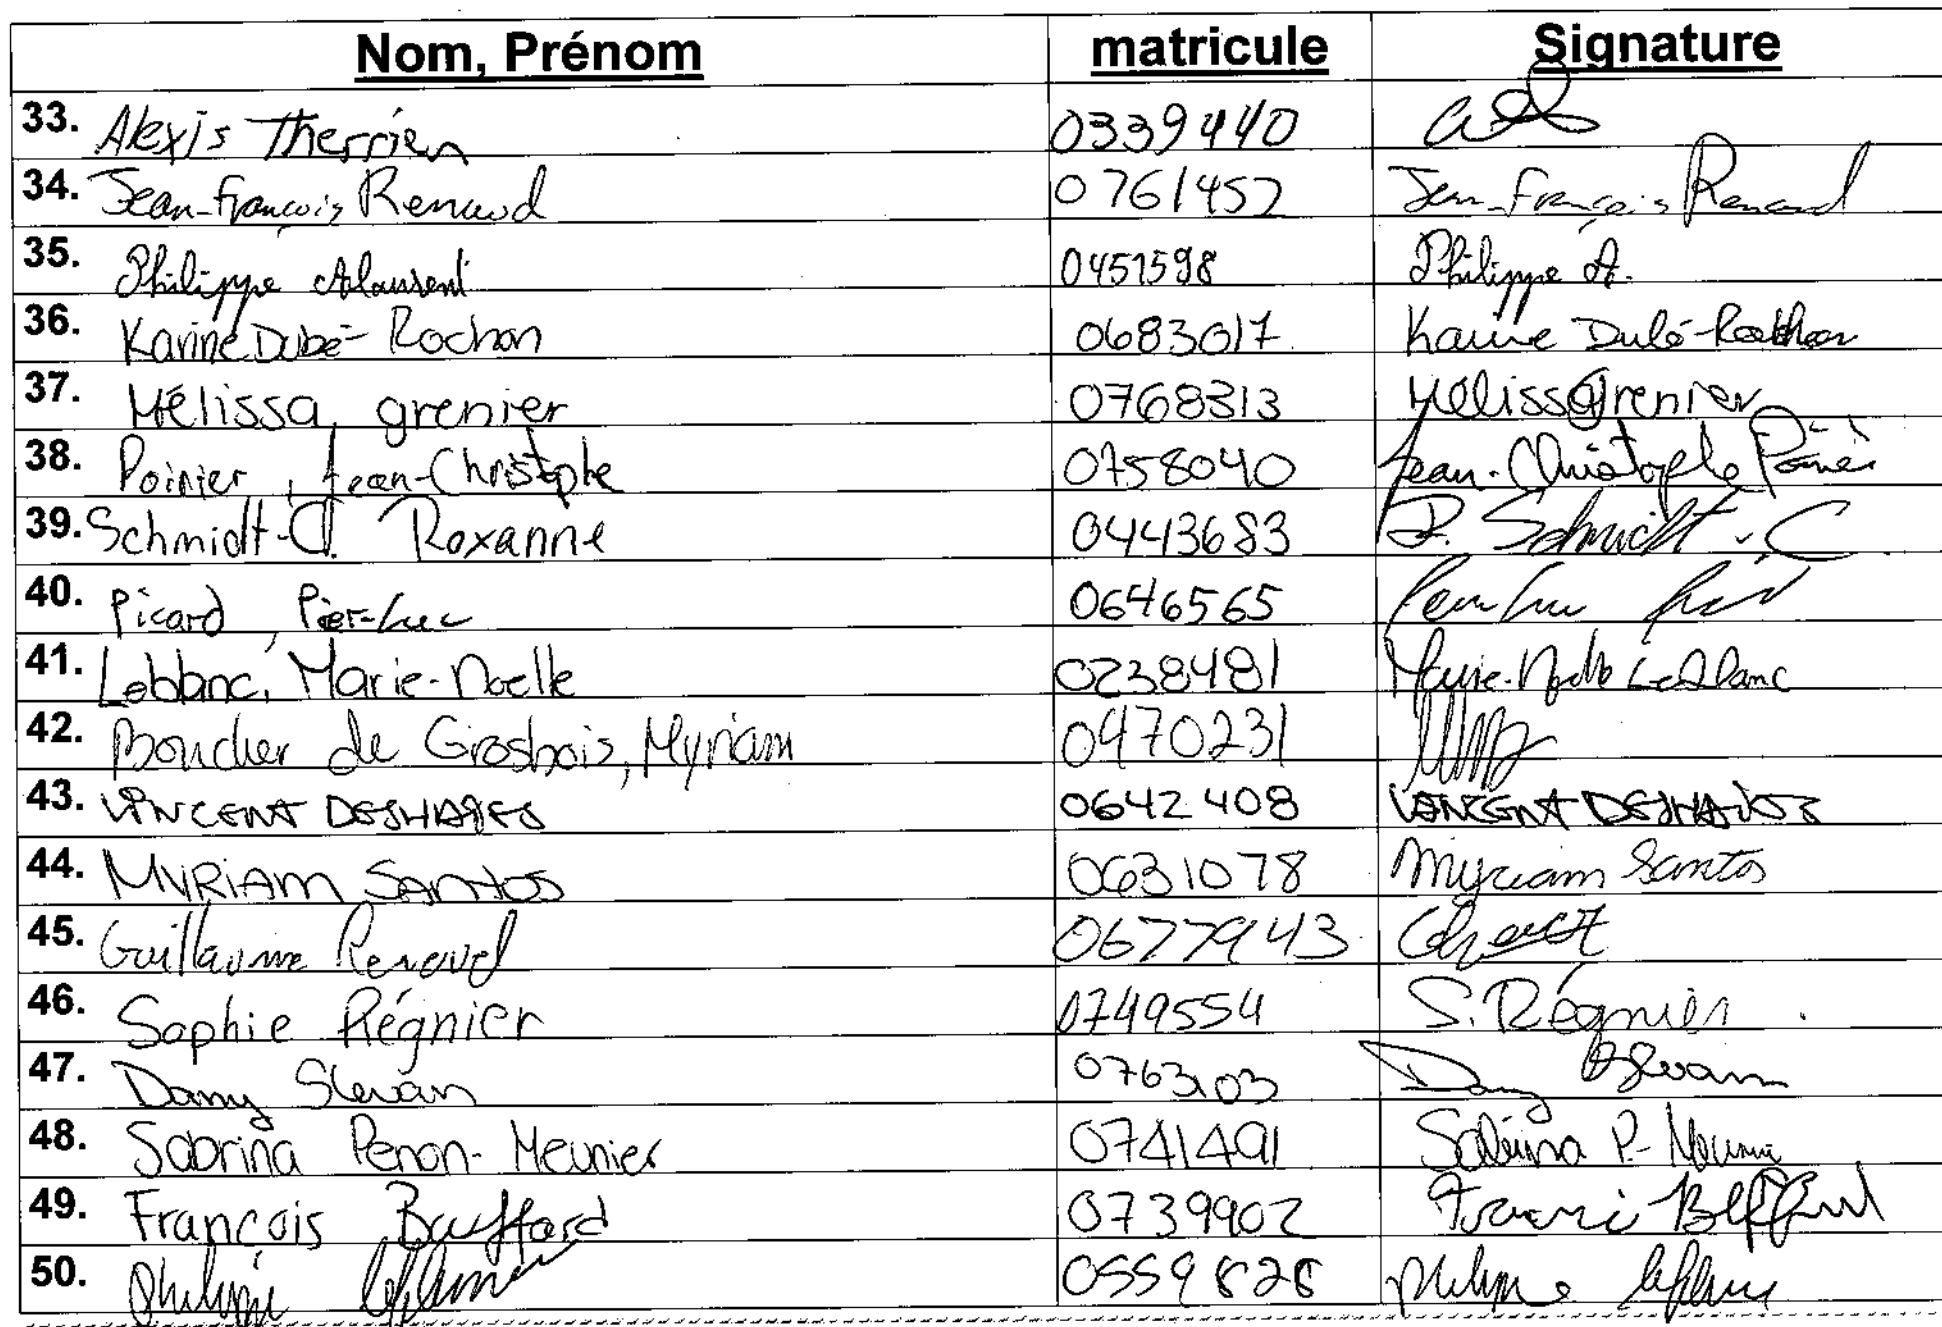 Nom, Prénom matricule Signature
33. Alexis Therrien 0339440
34. Jean-François Renaud 0761452 Jean-François Renaud
35. Philippe Alaurent 0451598 Philippe A.
36. Karine Dubé-Rochon 0683017 Karine Dubé-Rochon
37. Mélissa grenier 0768313 Mélissa Grenier
38. Poirier, Jean-Christophe 0758040 Jean-Christophe Poirier
39. Schmidt-C. Roxanne 0443683 R. Schmidt-C
40. Picard, Pier-Luc 0646565
41. Leblanc, Marie-Noelle 0238481 Marie-Noelle LeBlanc
42. Boucher de Grosbois, Myriam 0970231
43. VINCENT DESHAIES 0642408 VINCENT DESHAIES
44. MYRIAM SANTOS 0631078 Myriam Santos
45. Guillaume Renaud 0677943
46. Sophie Régnier 0749554 S. Régnier
47. Dany 0763103 Dany
48. Sabrina Penon-Meunier 0741491 Sabrina P.-Meunier
49. François Bouffard 0739902
50. Philippe 0559828 Philippe